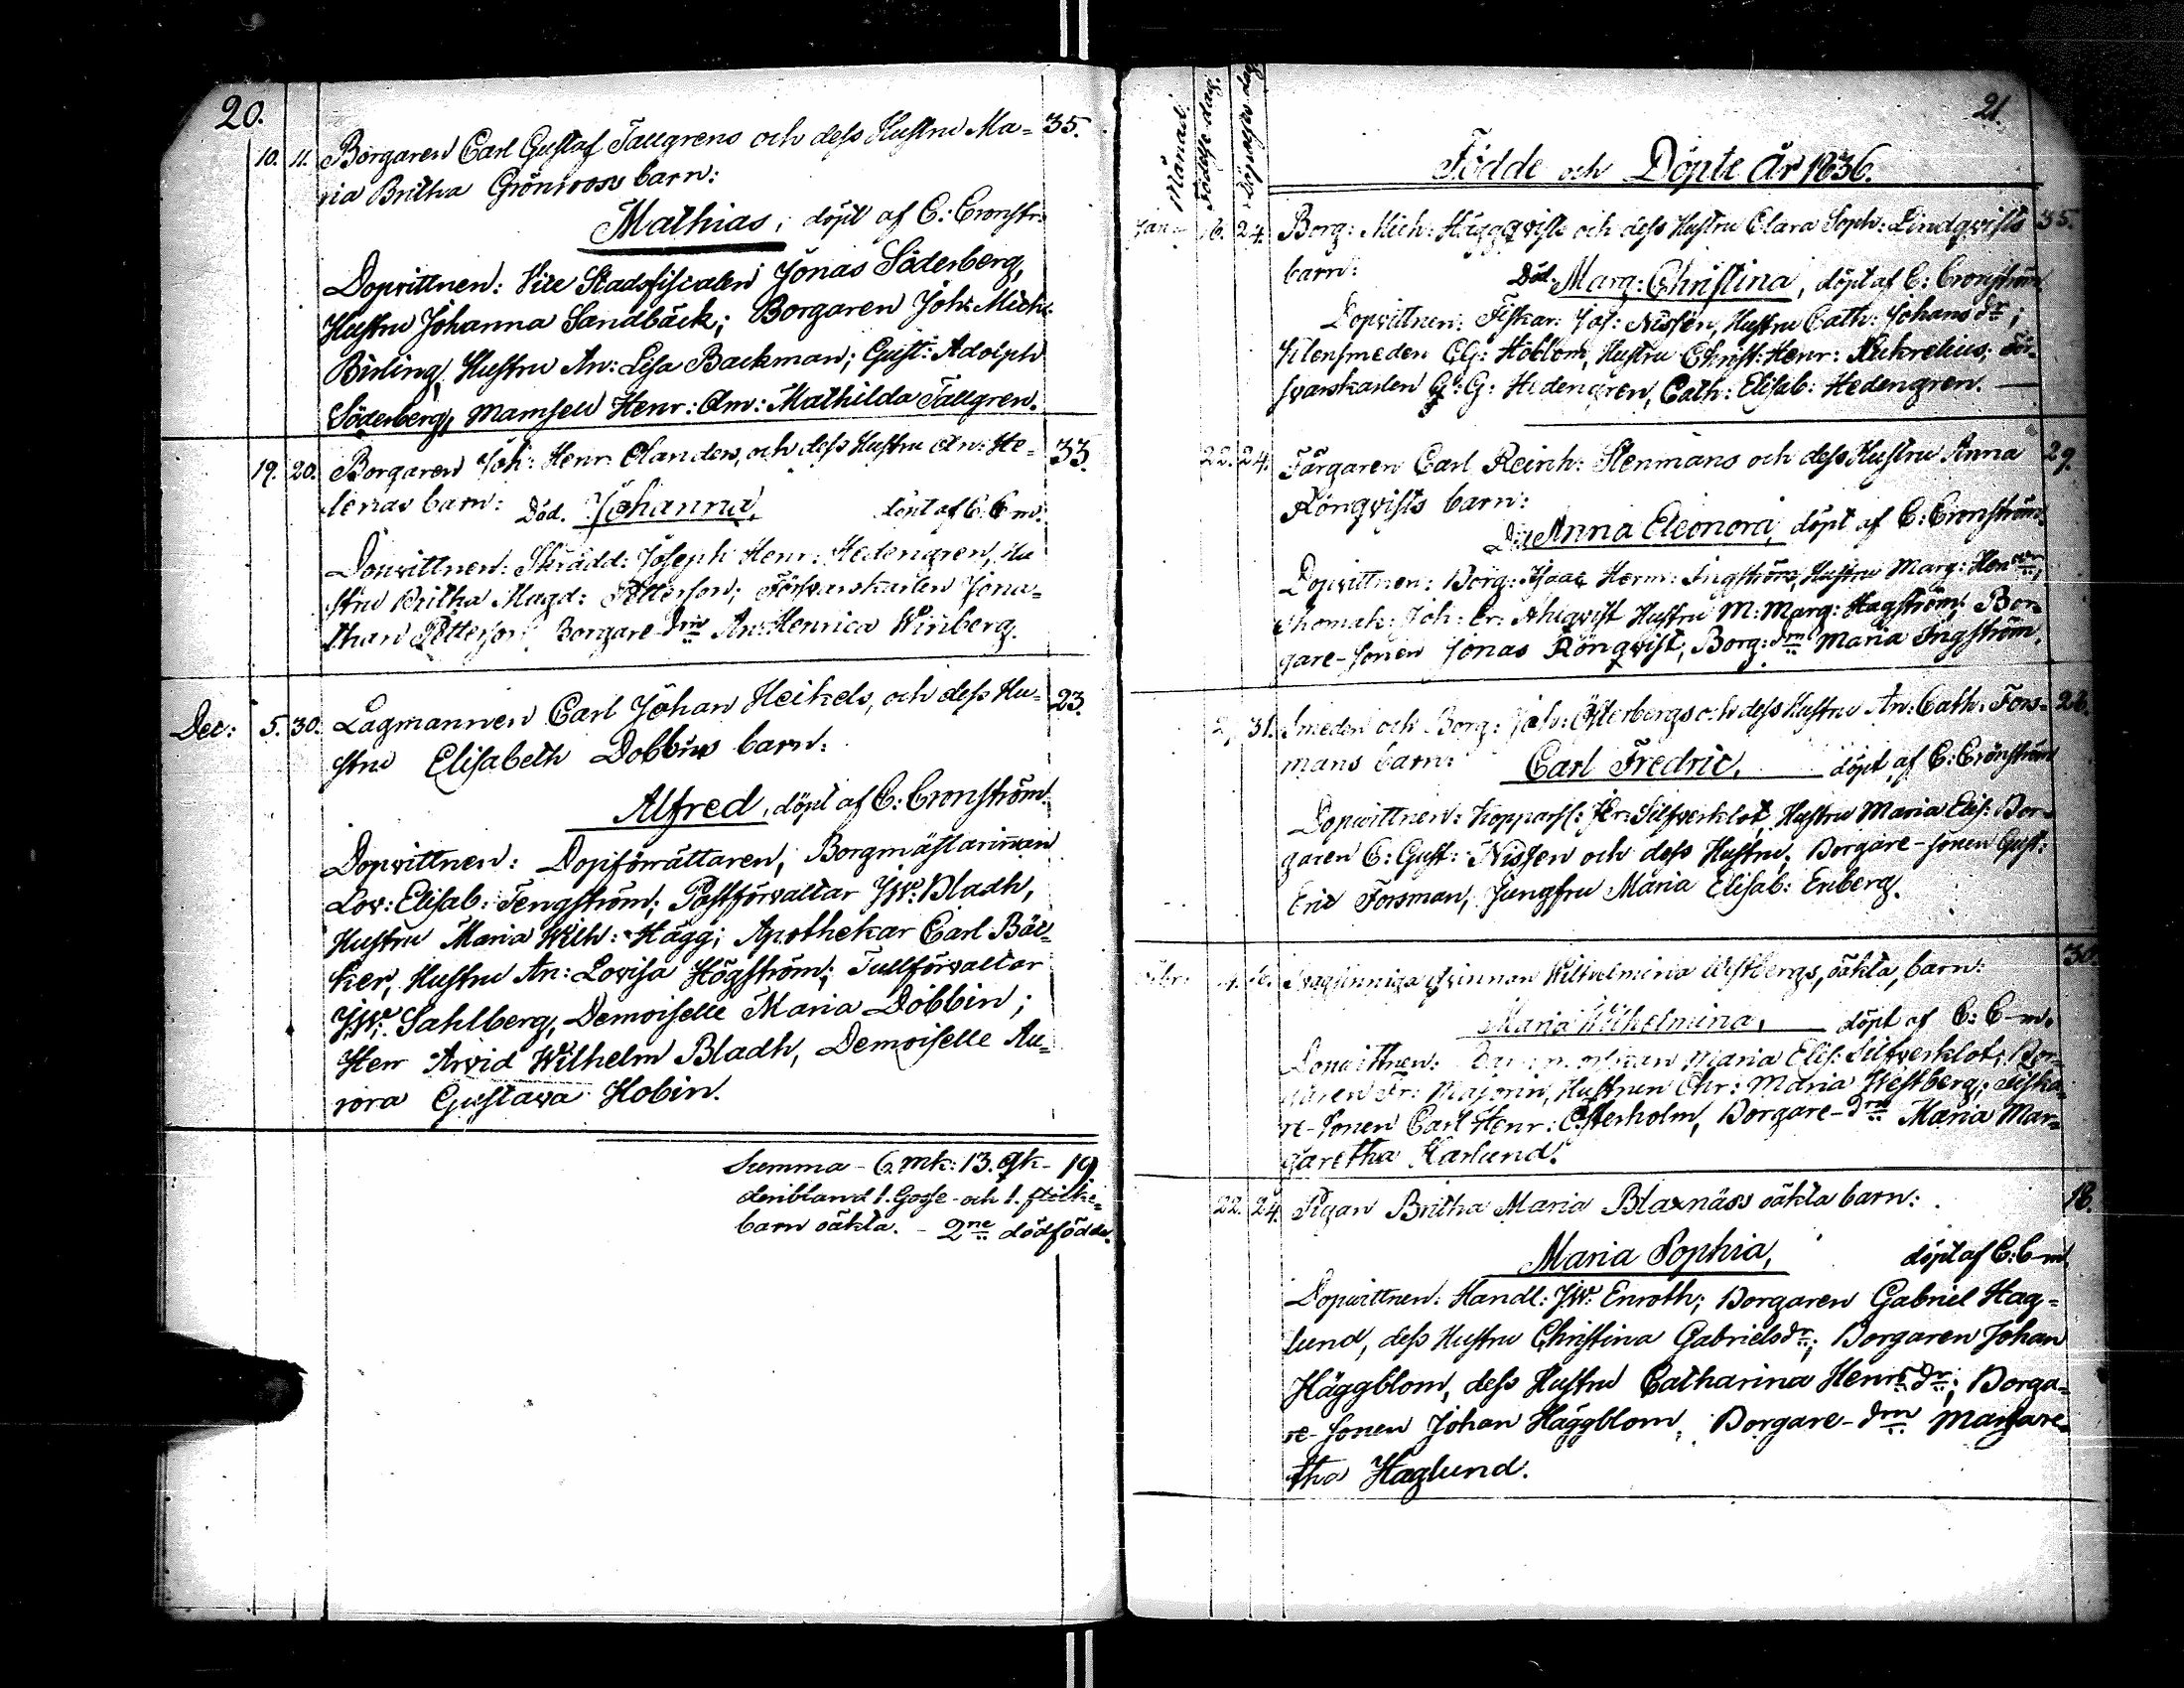 20.
10. 11. Borgaren Carl Gustaf Tallgrens och dess Hustru Ma= 35.
ria Britha Grönroos barn:
Mathias; döpt af C: Cronstr:
Dopvittnen: Vice Stadsfiscalen Jonas Söderberg,
Hustru Johanna Sandbäck; Borgaren Joh: Mich:
Birling, Hustru An: Lisa Backman; Gust: Adolph
Söderberg, Mamsell Henr: Am: Mathilda Tallgren.
19. 20. Borgaren Joh: Henr: Elanders, och dess Hustru An: He= 33.
lenas barn: Död. Johanna, döpt af C: C-m.
Dopvittnen: Skrädd: Joseph Henr: Hedengren, Hu
stru Britha Magd: Petterson; Försvarskarlen Jona=
than Petterson, Borgare-drn An: Henrica Winberg.
Dec: 5. 30. Lagmannen Carl Johan Heikels, och dess Hu= 23.
stru Elisabeth Dobbins barn:
Alfred, döpt af C: Cronström.
Dopvittnen: Dopförrättaren, Borgmästarinnan
Lov: Elisab: Tengström; Postförvaltar JW: Bladh,
Hustru Maria Wilh: Hägg; Apothekar Carl Bäc=
ker, Hustru An: Lovisa Högström; Tullförvaltar
JW: Sahlberg, Demoiselle Maria Dobbin;
Herr Arvid Wilhelm Bladh, Demoiselle Au=
rora Gustava Hobin.
Summa - 6. mk: 13. qk - 19
deribland 1. Gosse- och 1. flicke=
barn oäkta. - 2ne dödfödde.
21.
Månad. Födelse dag. Döpelses dag
Födde och Döpte År 1836.
Jan: 16. 24. Borg: Mich: Häggqvists och dess Hustru Clara Soph: Lindqvists 35.
barn: Död. Marg: Christina, döpt af C: Cronström
Dopvittnen: Fiskar: Jos: Nissen, Hustru Cath: Johans dr;
Klensmeden CG: Höblom, Hustru Christ: Henr: Kuhrelius; För=
svarskarlen G: G: Hedengren, Cath: Elisab: Hedengren.
22. 24. Färgaren Carl Reinh: Stenmans och dess Hustru Anna 29.
Rönqvists barn:
Död Anna Eleonora, döpt af C: Cronström.
Dopvittnen: Borg: Isaac Herm: Ingström, Hustru Marg: Hen dr;
Joh: Er: Ahlqvist Hustru M: Marg: Hagström; Bor=
gare-sonen Jonas Rönqvist, Borg: drn Maria Ingström.
31. Smeden och Borg: Joh: Österbergs och dess Hustru An: Cath: Fors=
mans barn: Carl Fredric, döpt af C: Cronström
Dopvittnen: Kopparsl: Silfverklot, Hustru Maria Elis: Bor=
garen C: Gust: Nissen och dess Hustru; Borgare-sonen Gust:
Eric Forsman, Jungfru Maria Elisab: Enberg.
Febr: Svagsinniga qvinnan Wilhelmina Westbergs, oäkta, barn: 30.
Maria Wilhelmina, döpt af C: C-m.
Dopvittnen: Maria Elis: Silfverklot; Bor=
garen Fr: Majorin, Hustrun Chr: Maria Westberg; Fiska=
re-Sonen Carl Henr: Österholm, Borgare-drn Maria Mar=
garetha Karlund.
22. 24. Pigan Britha Maria Blaxnäs's oäkta barn: 18.
Maria Sophia, döpt af C: C-m.
Dopvittnen: Handl: JW: Enroth; Borgaren Gabriel Hag=
lund, dess Hustru Christina Gabrielsdr; Borgaren Johan
Häggblom, dess Hustru Catharina Henrs dr; Borga=
re-sonen Johan Häggblom, Borgare-drn Margare=
tha Haglund.